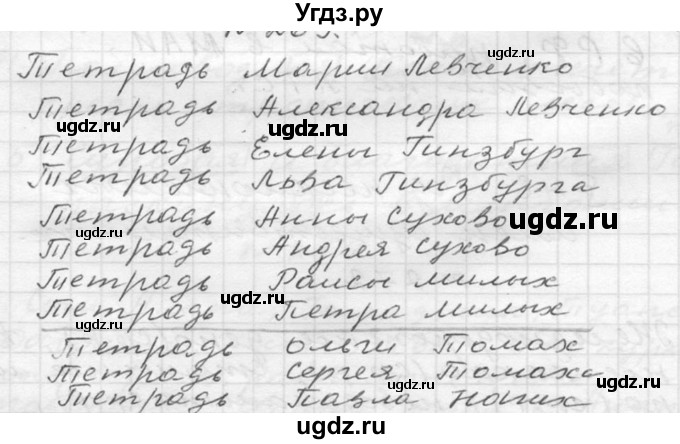 Угдз.ру
Тетрадь Марии Левченко
Тетрадь Александра Левченко
Тетрадь Елены Гинзбург
Тетрадь Льва Гинзбурга
Тетрадь Анны Сухово
Тетрадь Андрея Сухово
Тетрадь Раисы Милых
Тетрадь Петра Милых
Тетрадь Ольги Томах
Тетрадь Сергея Томаха
Тетрадь Павла Нагих
ugdz.ru
ugdz.ru
ugdz.ru
ugdz.ru
ugdz.ru
ugdz.ru
ugdz.ru
ugdz.ru
ugdz.ru